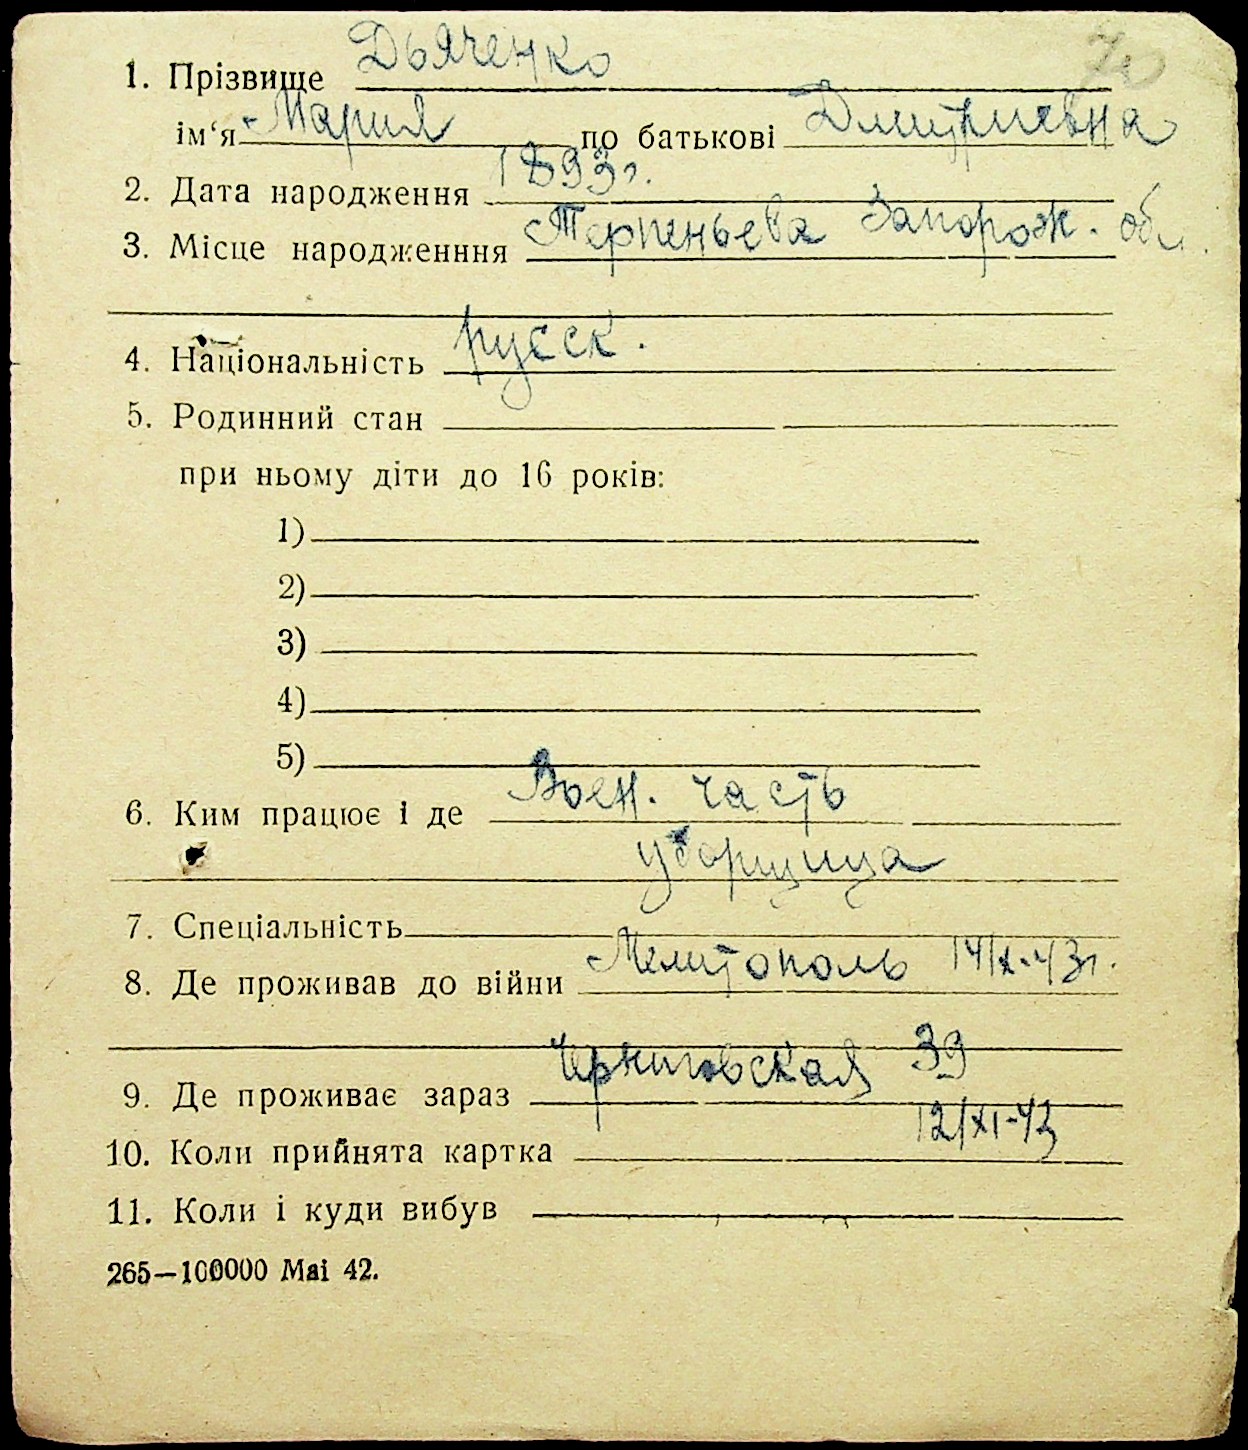 70
1. Прізвище Дьяченко
ім‘я Мария по батькові Дмитриевна
2. Дата народження 1893 г.
3. Місце народженння Терпеньева Запорож. обл.
4. Національність русск.
5. Родинний стан
при ньому діти до 16 років:
1)
2)
3)
4)
5)
6. Ким працює і де Воен. часть
уборщица
7. Спеціальність
8. Де проживав до війни Мелитополь 14/X-43г.
9. Де проживає зараз Черниговская 39
10. Коли прийнята картка 12/XI-43
11. Коли і куди вибув
265—100000 Mai 42.